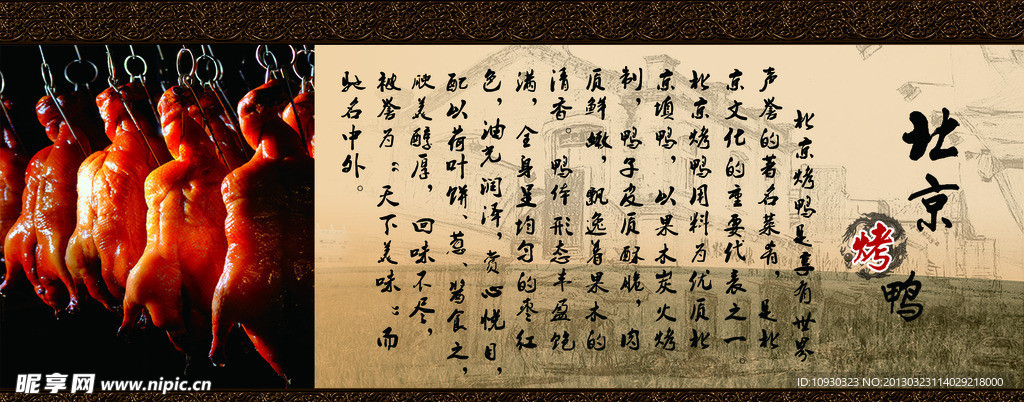 北京烤鸭
北京烤鸭是享有世界
声誉的著名菜肴，是北
京文化的重要代表之一。
北京烤鸭用料为优质北
京填鸭，以果木炭火烤
制，鸭子皮质酥脆，肉
质鲜嫩，飘逸着果木的
清香。鸭体形态丰盈饱
满，全身呈均匀的枣红
色，油光润泽，赏心悦目，
配以荷叶饼、葱、酱食之，
腴美醇厚，回味不尽，
被誉为“天下美味”而
驰名中外。
昵享网 www.nipic.cn
ID:10930323 NO:20130323114029218000